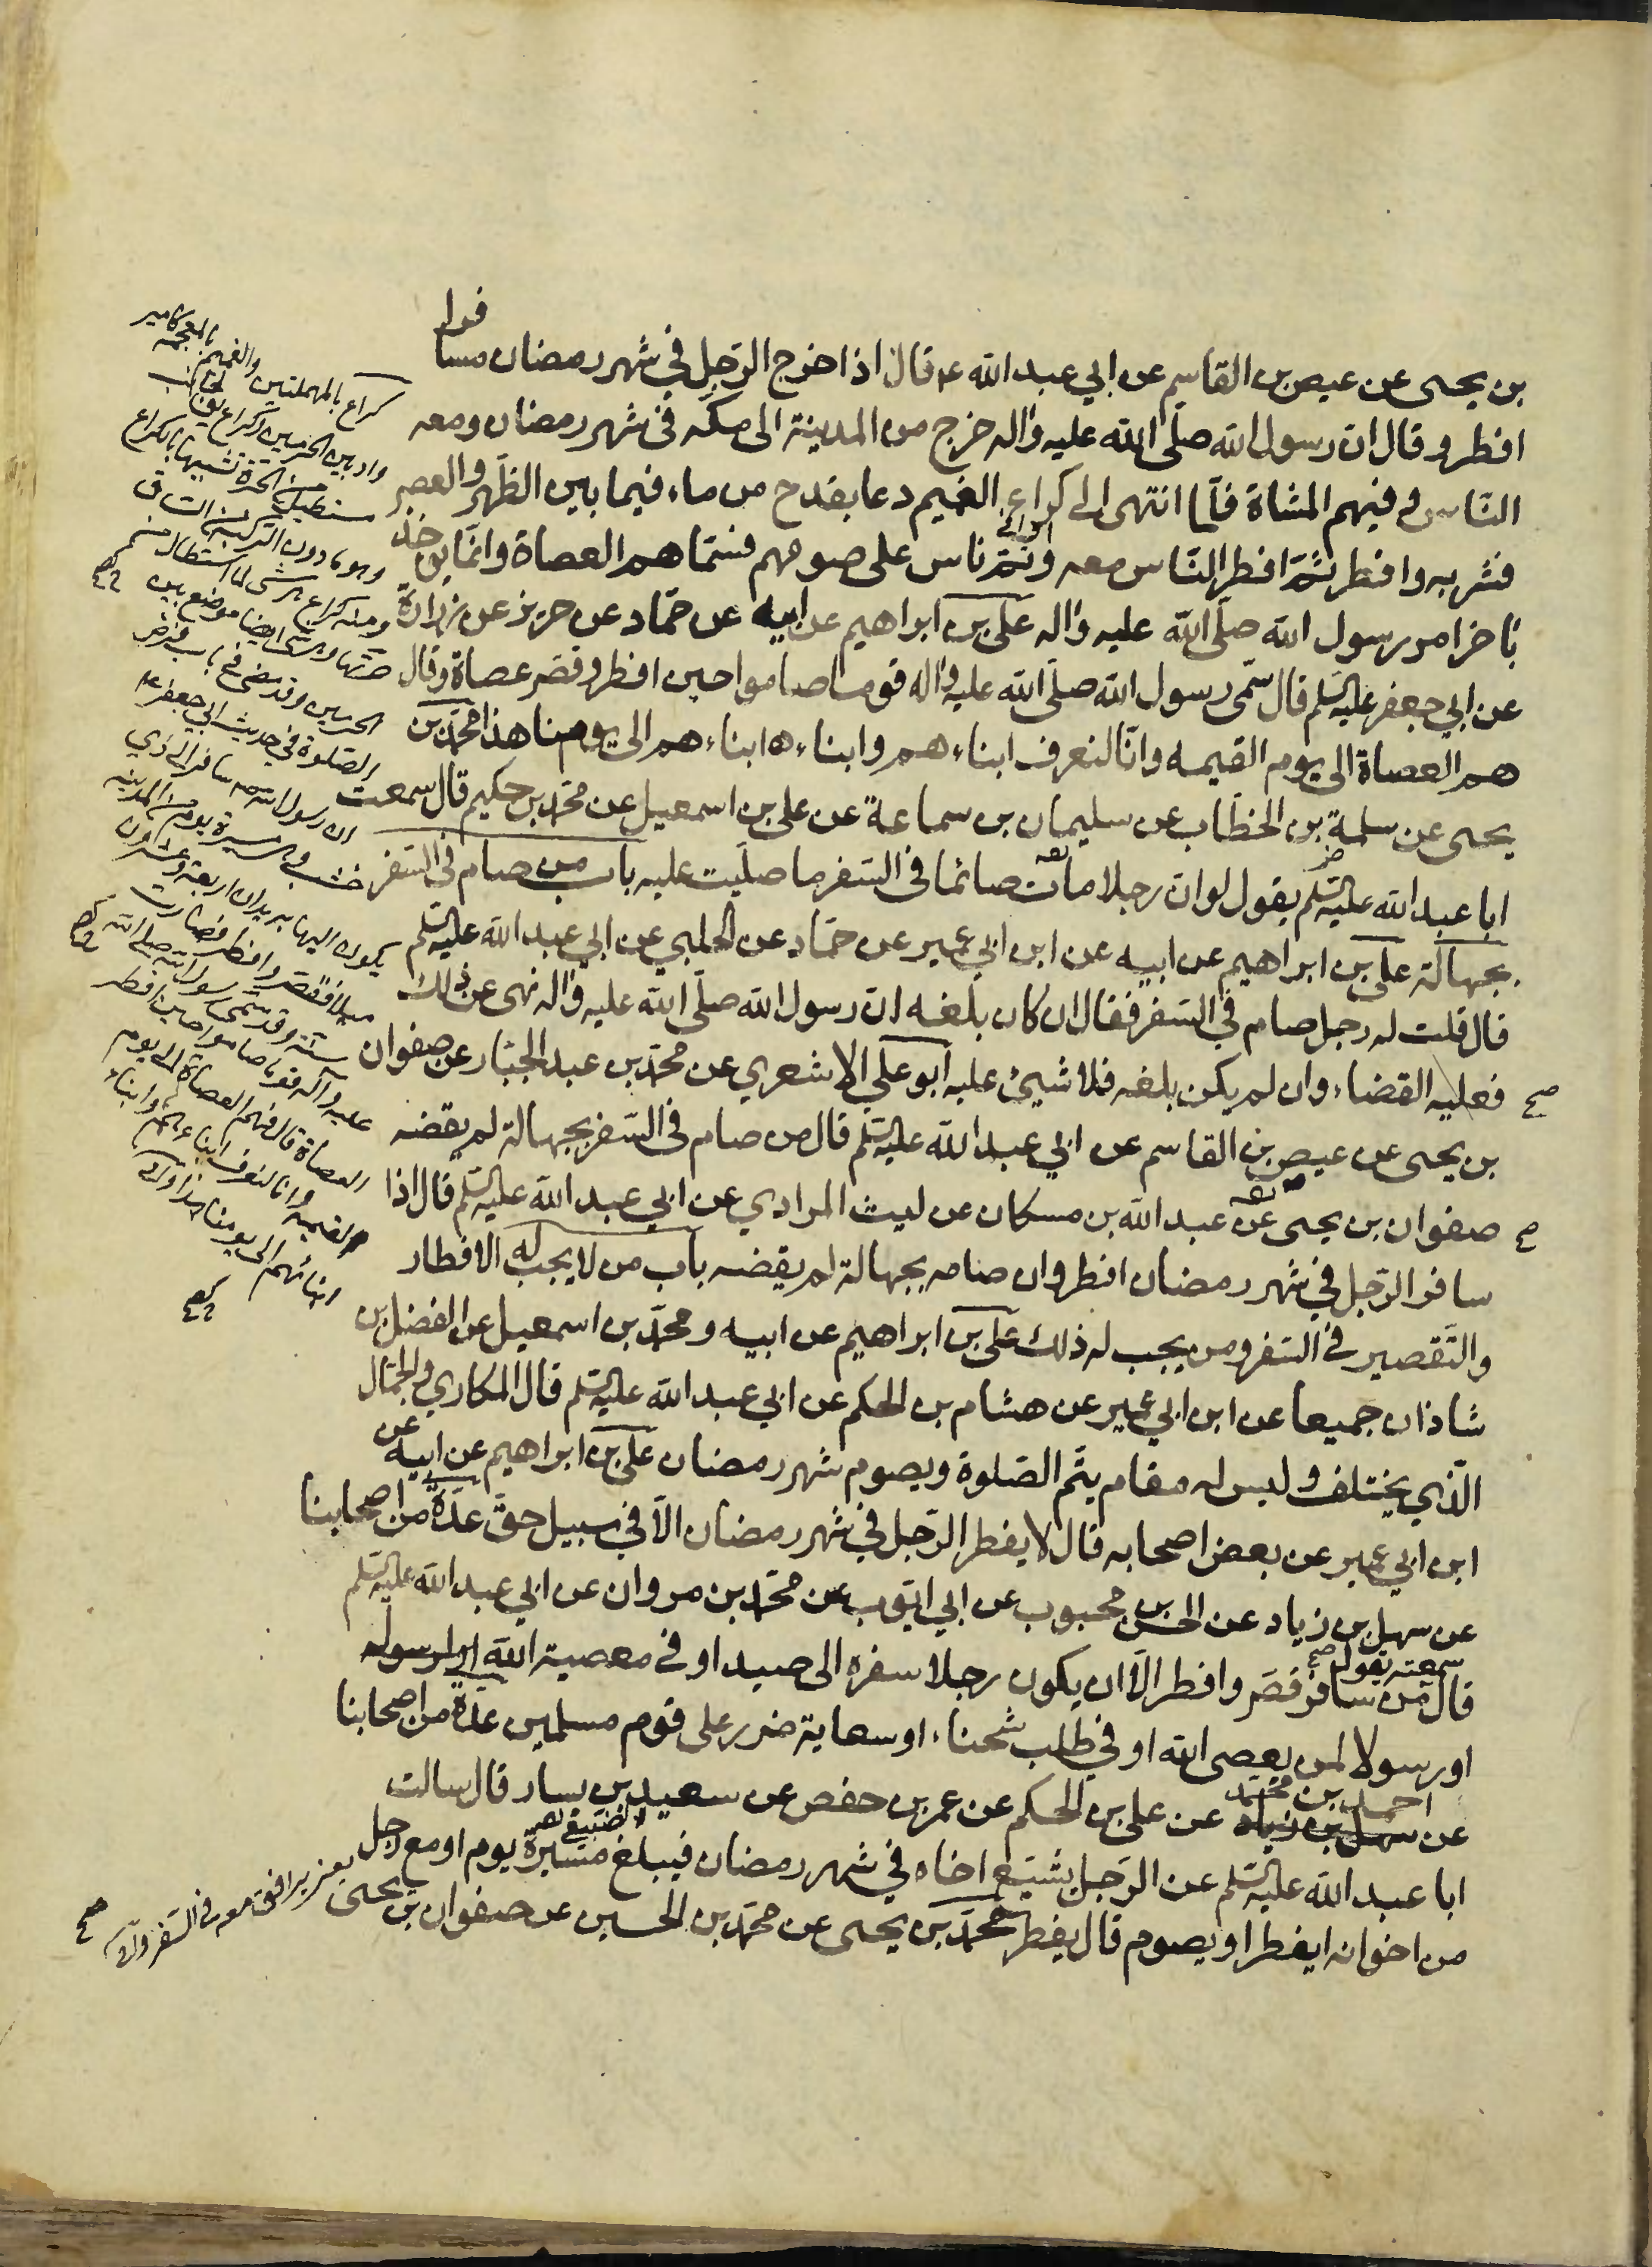 بن يحيى عن عيص بن القاسم عن ابي عبد الله ع قال اذا خرج الرّجل في شهر رمضان مسافرا
افطر و قال ان رسول الله صلّى الله عليه واله خرج من المدينة الى مكه في شهر رمضان ومعه
النّاس وفيهم المشاة فلمّا انتهى الى كراع الغيم دعا بقدح من ماء فيما بين الظّهر والعصر
فشربه وافطر ثمّ افطر النّاس معه وثمّ ناس على صومهم فسمّاهم العصاة وانّما يؤخذ
باخر امر رسول الله صلّى الله عليه واله علي بن ابراهيم عن ابيه عن حمّاد عن حريز عن زرارة
عن ابي جعفر عليه السّلم قال سمّى رسول الله صلّى الله عليه واله قوما صاموا حين افطر وقصّر عصاة وقال
هم العصاة الى يوم القيمه وانّا لنعرف ابناءهم وابناء ابناءهم الى يومنا هذا محمّد بن
يحيى عن سلمة بن الخطّاب عن سليمان بن سماعة عن علي بن اسمعيل عن محمّد بن حكيم قال سمعت
ابا عبد الله عليه السّلم يقول لو ان رجلا مات صائما في السّفر ما صلّيت عليه باب من صام في السّفر
بجهالة علي بن ابراهيم عن ابيه عن ابن ابي عمير عن حمّاد عن الحلبي عن ابي عبد الله عليه السّلم
قال قلت له رجل صام في السّفر فقال ان كان بلغه ان رسول الله صلّى الله عليه واله نهى عن ذلك
فعليه القضاء وان لم يكن بلغه فلا شيئ عليه ابو علي الاشعري عن محمّد بن عبد الجبّار عن صفوان
صح
بن يحيى عن عيص بن القاسم عن ابي عبد الله عليه السّلم قال من صام في السّفر بجهالة لم يقضه
صفوان بن يحيى عن عبد الله بن مسكان عن ليث المرادي عن ابي عبد الله عليه السّلم قال اذا
سافر الرّجل في شهر رمضان افطر وان صامه بجهالة لم يقضه باب من لا يجب له الافطار
والتّقصير في السّفر ومن يجب له ذلك علي بن ابراهيم عن ابيه ومحمّد بن اسمعيل عن الفضل بن
شاذان جميعا عن ابن ابي عمير عن هشام بن الحكم عن ابي عبد الله عليه السّلم قال المكاري والجمّال
الّذي يختلف وليس له مقام يتّم الصّلوة ويصوم شهر رمضان علي بن ابراهيم عن ابيه عن
ابن ابي عمير عن بعض اصحابه قال لا يفطر الرّجل في شهر رمضان الّا في سبيل حقّ عدّة من اصحابنا
عن سهل بن زياد عن الحسن بن محبوب عن ابي ايّوب عن محمّد بن مروان عن ابي عبد الله عليه السّلم
سمعته يقول صح
قال من سافر قصّر وافطر الّا ان يكون رجلا سفره الى صيد او في معصية الله او لرسوله
او رسولا لمن يعصى الله او في طلب شحناء او سعاية ضرر على قوم مسلمين عدّة من اصحابنا
احمد بن محمّد
عن سهل بن زياد عن علي بن الحكم عن عمر بن حفص عن سعيد بن يسار قال سالت
ابا عبد الله عليه السّلم عن الرّجل يشيّع اخاه في شهر رمضان فيبلغ مسيرة يوم او مع رجل
من اخوانه ايفطر او يصوم قال يفطر محمّد بن يحيى عن محمّد بن الحسين عن صفوان بن يحيى
كراع بالمهملتين والغميم بالمعجمه كامير
واد بين الحرمين وكراع
مستطيل من الحرّة تشبيها بالكراع
وهو ما دون الركبة من الساق
الحرمين وقد مضى في باب
الصّلوة في حديث ابي جعفر ع
ان رسول الله ص سافر الى ذي
خشب وهي مسيرة يوم من المدينه
يكون اليها بريدان اربعة وعشرون
ميلا فقصّر وافطر فصارت
سنّة وقد سمّى رسول الله صلى الله
عليه وآله قوما صاموا حين افطر
العصاة قال فهم العصاة الى يوم
القيمه وانا لنعرف ابناءهم وابناء
ابنائهم الى يومنا هذا
صح